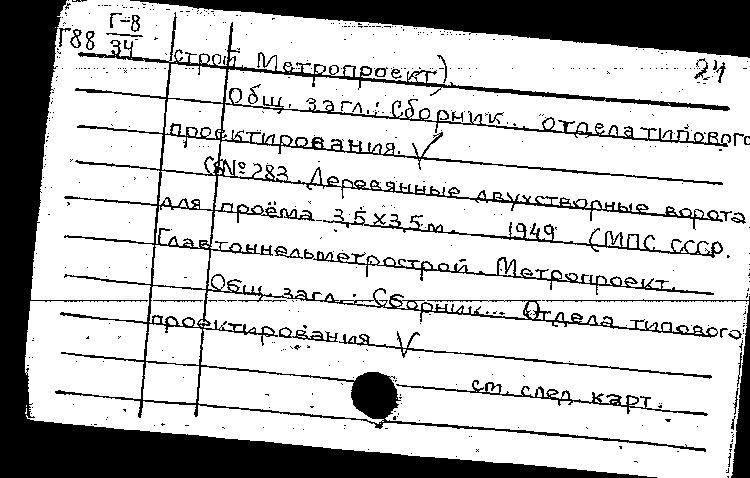 Г88 Г-8
34
24
строй. Метропроект).
Общ. загл.: Сборник... отдела типового
проектирования. V
№283. Деревянные двухстворные ворота
для проёма 3,5х3,5м. 1949. (МПС СССР.
Главтоннельметрострой. Метропроект.
Общ. загл.: Сборник... Отдела типового
проектирования. V
см. след. карт.